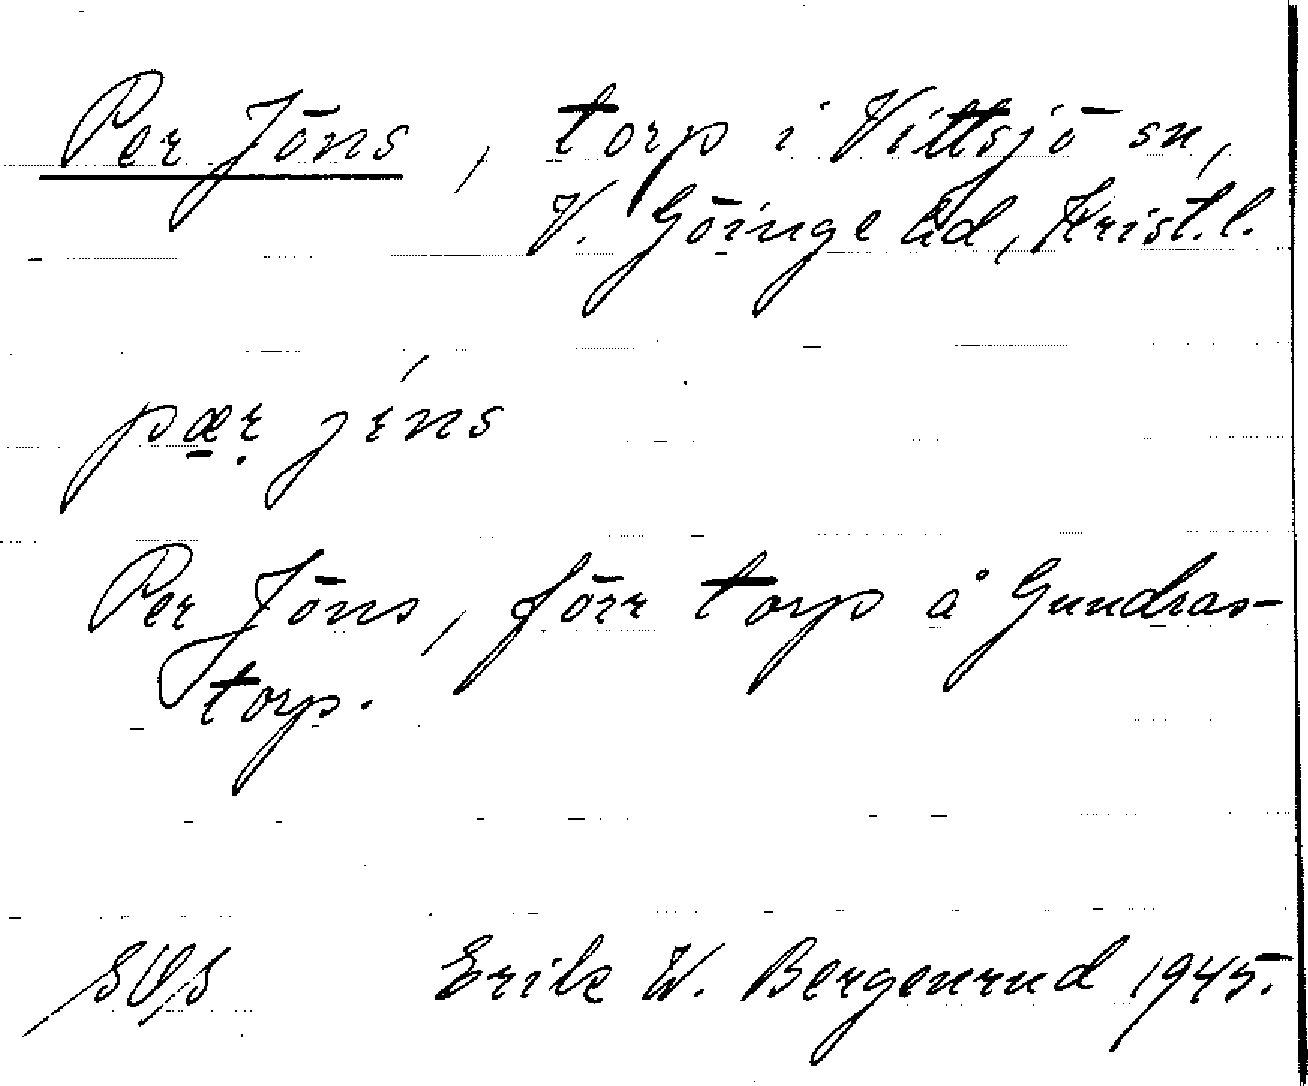 Per Jöns, torp i Vittsjö sn,
V. Göinge hd, Krist.l.
pær jéns
Per Jöns, förr torp å Gundras-
torp.
Erik W. Bergenrud 1945.